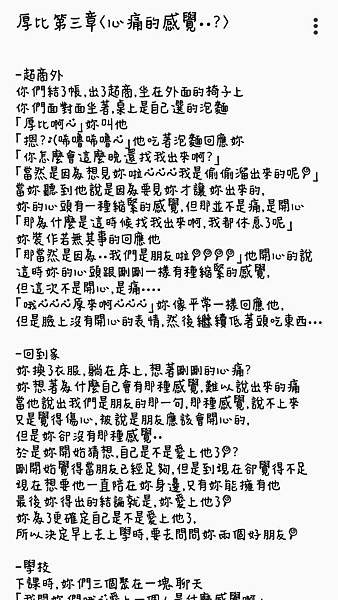 厚比第三章<心痛的感覺..?>
-超商外
你們結了帳,出了超商,坐在外面的椅子上
你們面對面坐著,桌上是自己選的泡麵
「厚比啊~」妳叫他
「摁?♪(唏嚕唏嚕~」他吃著泡麵回應妳
「你怎麼會這麼晚還找我出來啊?」
「當然是因為想見妳啦~~~我是偷偷溜出來的呢」
當妳聽到他說是因為要見妳才讓妳出來的,
妳的心頭有一種縮緊的感覺,但那並不是痛,是開心
「那為什麼是這時候找我出來啊,我都休息了呢」
妳裝作若無其事的回應他
「那當然是因為..我們是朋友啦」他開心的說
這時妳的心頭跟剛剛一樣有種縮緊的感覺,
但這次不是開心,是痛....
「哦~~~原來啊~~~」妳像平常一樣回應他,
但是臉上沒有開心的表情,然後繼續低著頭吃東西...
-回到家
妳換了衣服,躺在床上,想著剛剛的心痛?
妳想著為什麼自己會有那種感覺,難以說出來的痛
當他說出我們是朋友的那一句,那種感覺,說不上來
又是覺得傷心,被說是朋友應該會開心的,
但是妳卻沒有那種感覺..
於是妳開始猜想,自己是不是愛上他了?
剛開始覺得當朋友已經足夠,但是到現在卻覺得不足
現在想要他一直陪在妳身邊,只有妳能擁有他
最後妳得出的結論就是,妳愛上他了
妳為了更確定自己是不是愛上他了,
所以決定早上去上學時,要去問問妳兩個好朋友
-學校
下課時,妳們三個聚在一塊聊天